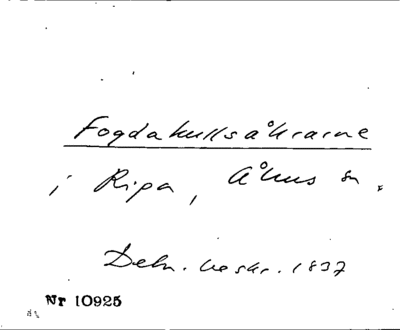 Fogdakullsåkrarne
i Ripa, Åhus sn.
Debn. beskr. 1837
Nr 10925